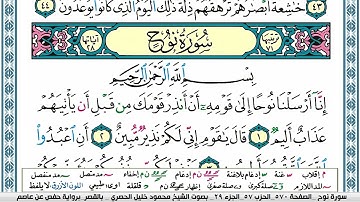 خَٰشِعَةً أَبۡصَٰرُهُمۡ تَرۡهَقُهُمۡ ذِلَّةٞۚ ذَٰلِكَ ٱلۡيَوۡمُ ٱلَّذِي كَانُواْ يُوعَدُونَ ٤٤
سُورَةُ نُوحٍ
بِسۡمِ ٱللَّهِ ٱلرَّحۡمَٰنِ ٱلرَّحِيمِ
إِنَّآ أَرۡسَلۡنَا نُوحًا إِلَىٰ قَوۡمِهِۦٓ أَنۡ أَنذِرۡ قَوۡمَكَ مِن قَبۡلِ أَن يَأۡتِيَهُمۡ
عَذَابٌ أَلِيمٞ ١ قَالَ يَٰقَوۡمِ إِنِّي لَكُمۡ نَذِيرٞ مُّبِينٌ ٢ أَنِ ٱعۡبُدُواْ
سورة نوح - الصفحة ٥٧٠ - الحزب ٥٧ - الجزء ٢٩ - بصوت الشيخ محمود خليل الحصري - بالقصر برواية حفص عن عاصم